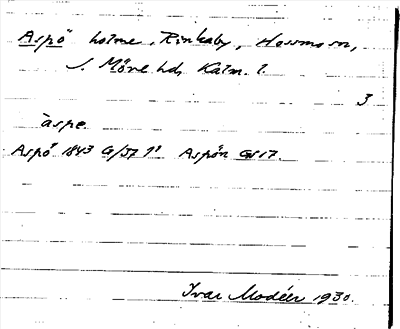 Aspö holme, Rinkaby, Hossmo sn,
S. Möre hd, Kalm. l.
3
àspe.
Aspö 1843 G/37 71 Aspön GS 17.
Ivar Modéer 1930.